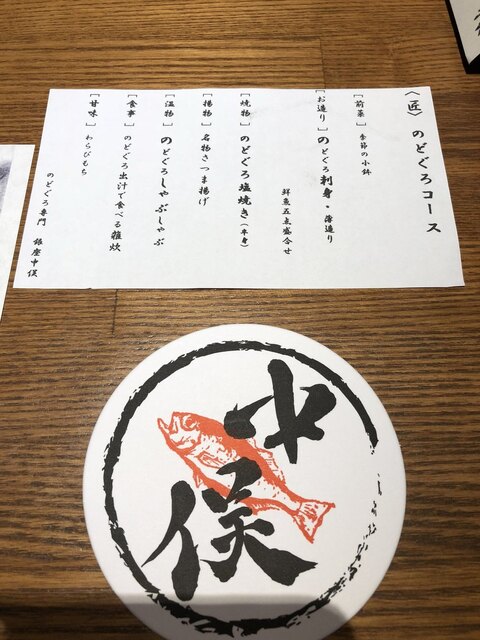 〈匠〉のどぐろコース
[前菜] 季節の小鉢
[お造り] のどぐろ刺身・薄造り
鮮魚五点盛合せ
[焼物] のどぐろ塩焼き(半身)
[揚物] 名物さつま揚げ
[温物] のどぐろしゃぶしゃぶ
[食事] のどぐろ出汁で食べる雑炊
[甘味] わらびもち
のどぐろ専門 銀座中俣
中俣